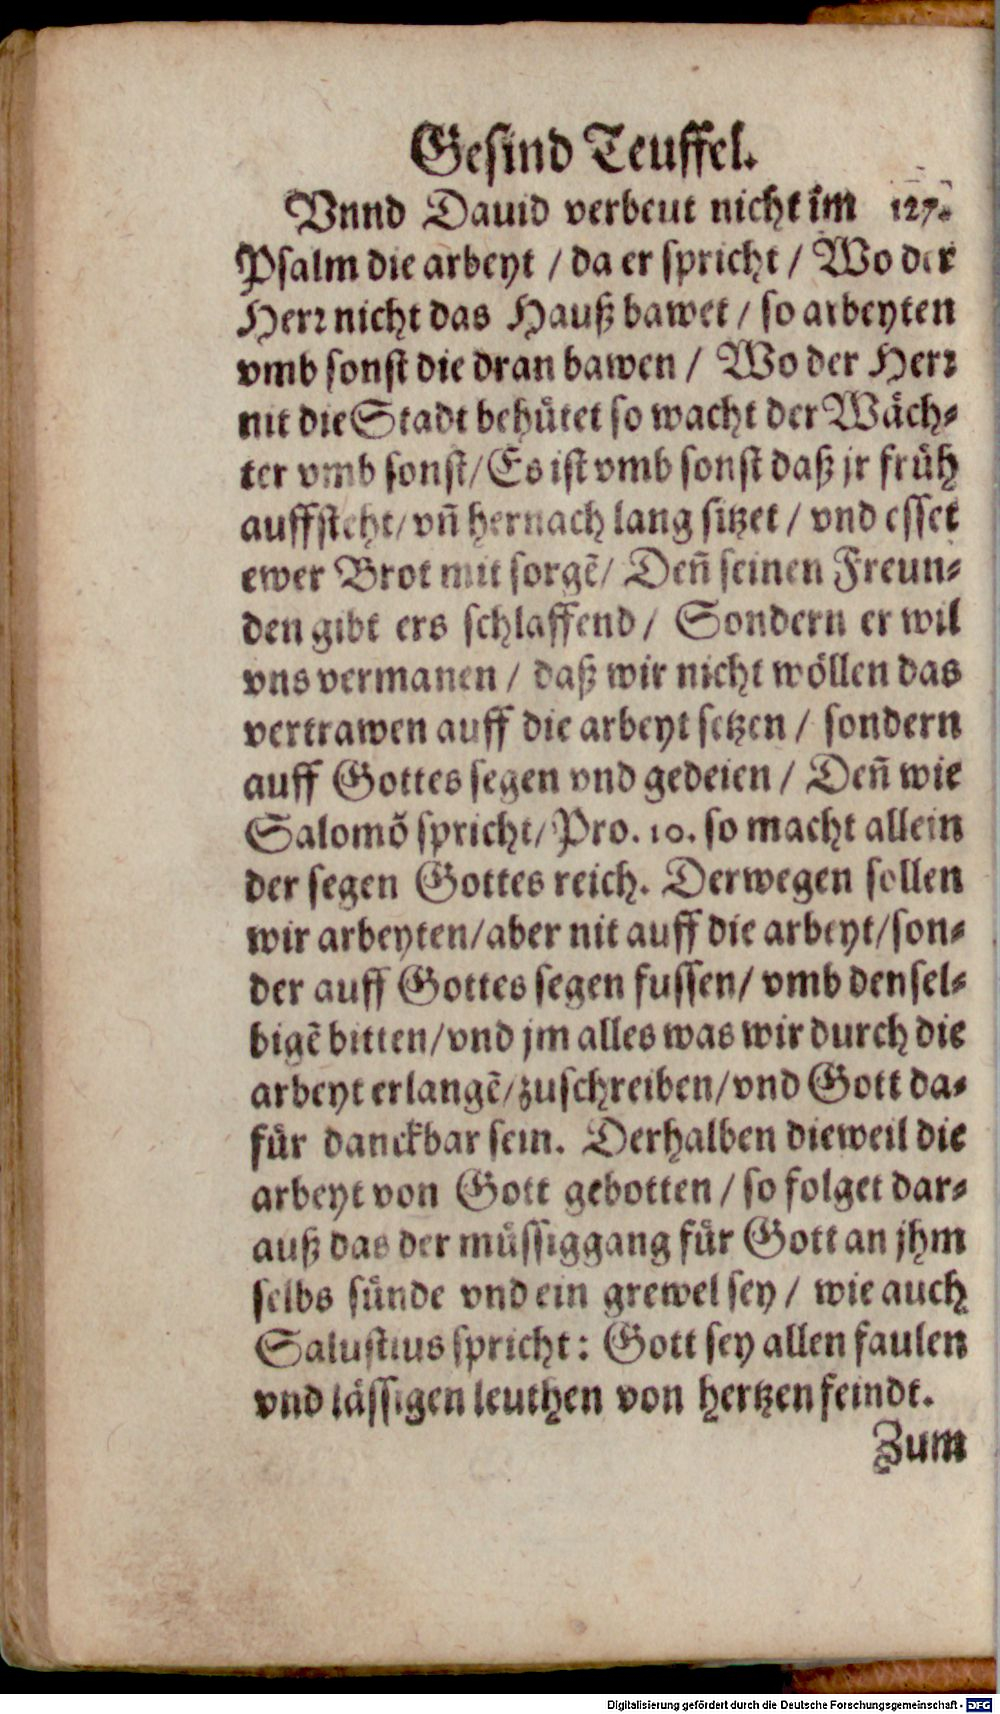 Gesind Teuffel.
Vnnd Dauid verbeut nicht im 127.
Psalm die arbeyt / da er spricht / Wo der
Herr nicht das Hauß bawet / so arbeyten
vmb sonst die dran bawen / Wo der Herr
nit die Stadt behütet so wacht der Wäch-
ter vmb sonst / Es ist vmb sonst daß jr früh
auffsteht / vñ hernach lang sitzet / vnd esset
ewer Brot mit sorgẽ / Deñ seinen Freun-
den gibt ers schlaffend / Sondern er wil
vns vermanen / daß wir nicht wöllen das
vertrawen auff die arbeyt setzen / sondern
auff Gottes segen vnd gedeien / Deñ wie
Salomõ spricht / Pro. 10. so macht allein
der segen Gottes reich. Derwegen sollen
wir arbeyten / aber nit auff die arbeyt / son-
der auff Gottes segen fussen / vmb densel-
bigẽ bitten / vnd jm alles was wir durch die
arbeyt erlangẽ / zuschreiben / vnd Gott da-
für danckbar sein. Derhalben dieweil die
arbeyt von Gott gebotten / so folget dar-
auß das der müssiggang für Gott an jhm
selbs sünde vnd ein grewel sey / wie auch
Salustius spricht: Gott sey allen faulen
vnd lässigen leuthen von hertzen feindt.
Zum
Digitalisierung gefördert durch die Deutsche Forschungsgemeinschaft - DFG